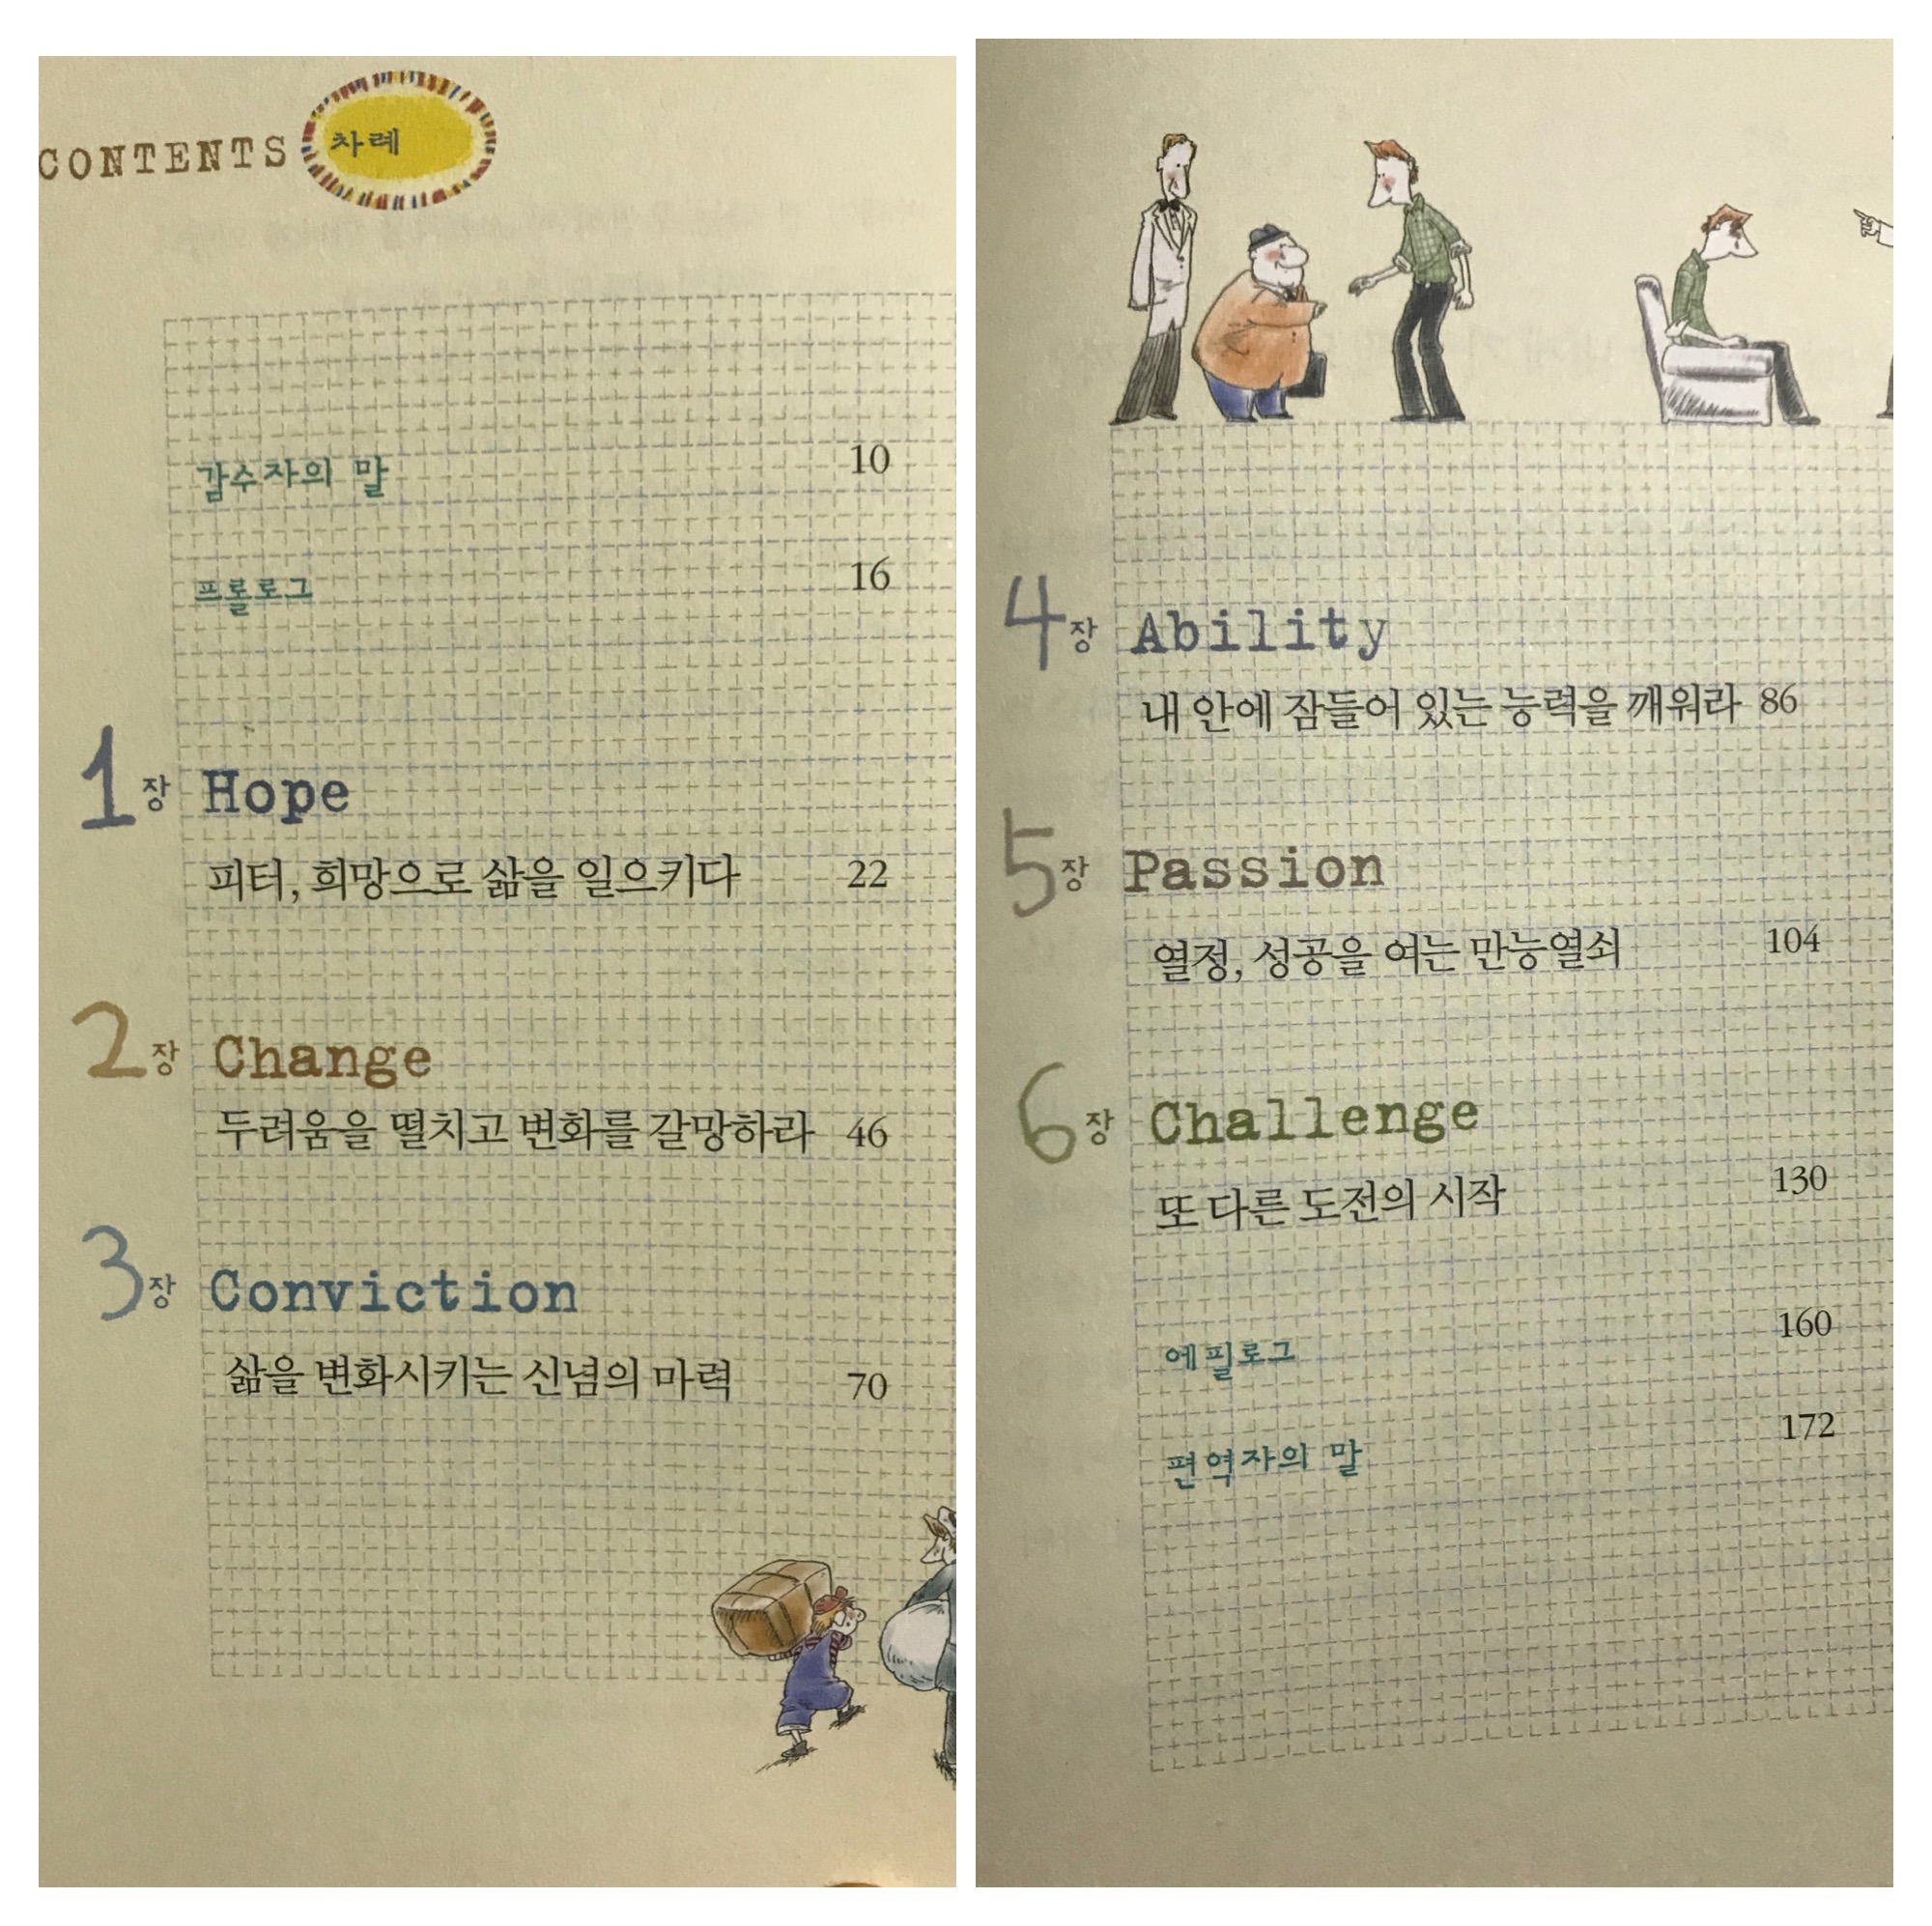 CONTENTS 차례
감수자의 말 10
프롤로그 16
1장 Hope
피터, 희망으로 삶을 일으키다 22
2장 Change
두려움을 떨치고 변화를 갈망하라 46
3장 Conviction
삶을 변화시키는 신념의 마력 70
4장 Ability
내 안에 잠들어 있는 능력을 깨워라 86
5장 Passion
열정, 성공을 여는 만능열쇠 104
6장 Challenge
또 다른 도전의 시작 130
에필로그 160
편역자의 말 172